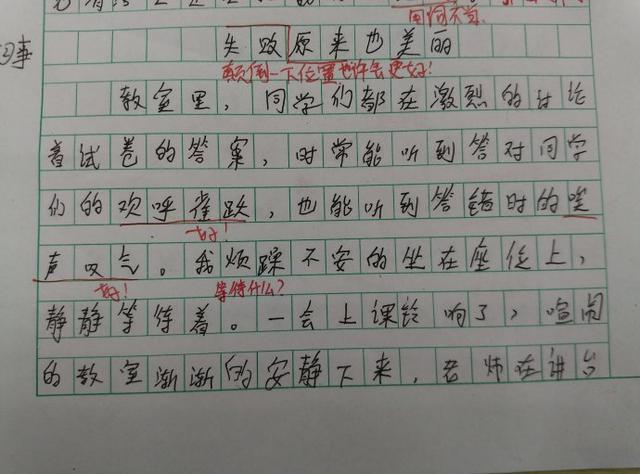 用词不当
习事
失败原来也美丽
颠倒一下位置也许会更好!
教室里,同学们都在激烈的讨论
着试卷的答案,时常能听到答对同学
们的欢呼雀跃,也能听到答错时的唉
好!
声叹气。我烦躁不安的坐在座位上,
好! 等待什么?
静静等待着。一会上课铃响了,喧闹
的教室渐渐的安静下来,老师在讲台